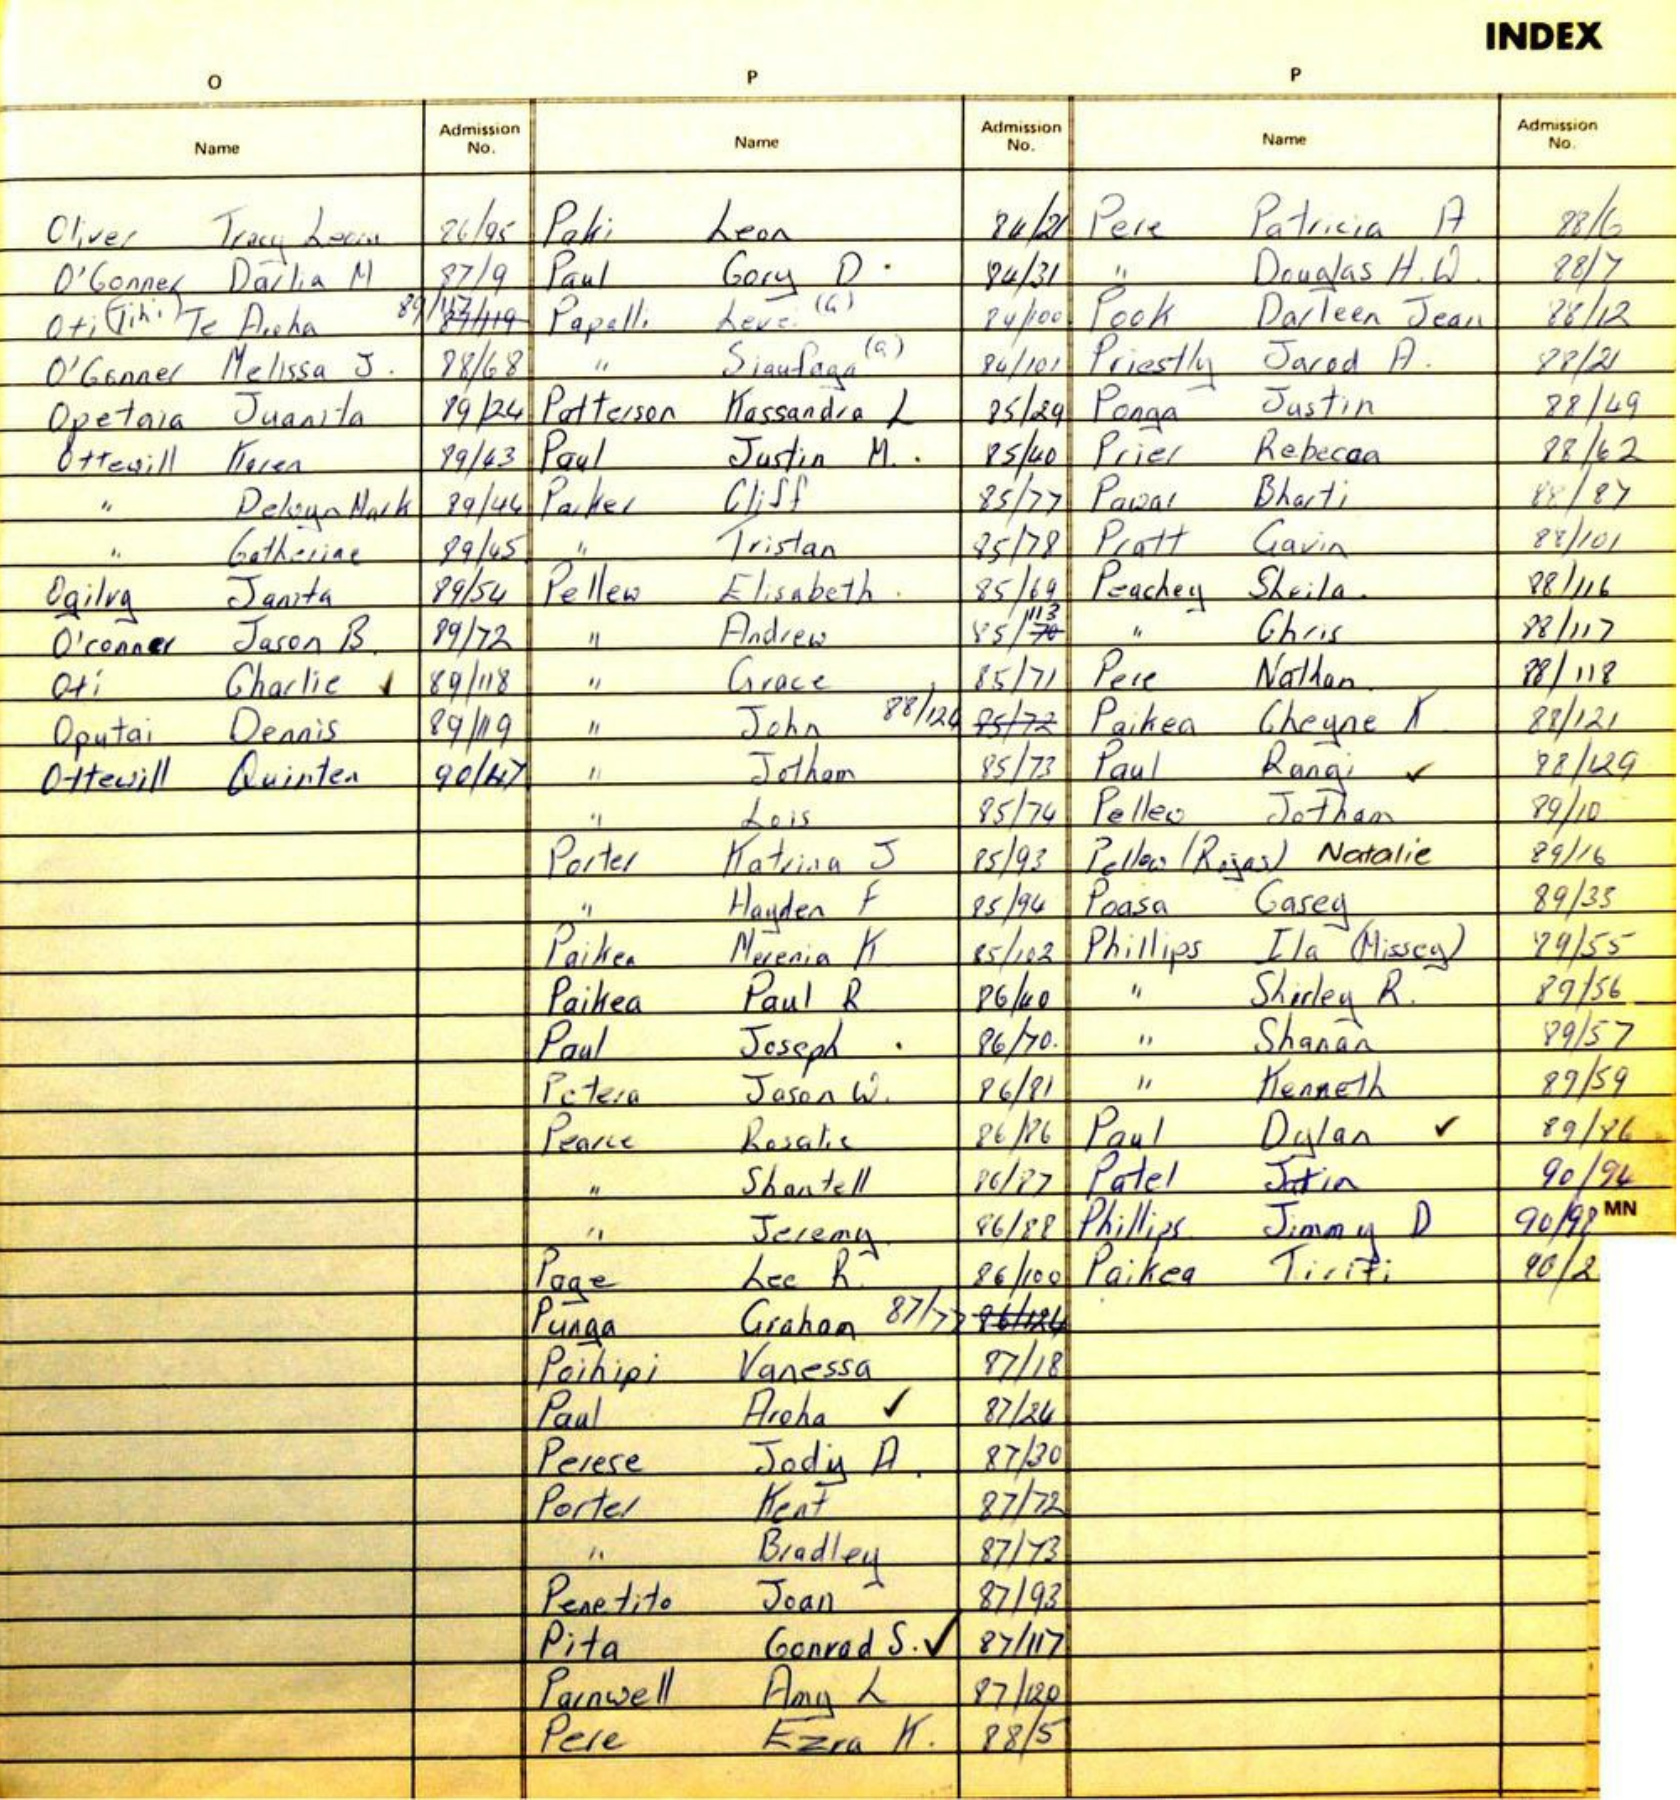 INDEX
O
Name Admission No.
Oliver Tracy Leona 86/95
O'Conner Dailia M 87/9
Oti (Tihi) Te Aroha 89/117 87/119
O'Conner Melissa J. 88/68
Opetaia Juanita 89/24
Ottewill Karen 89/43
" Delwyn Mark 89/44
" Catherine 89/45
Ogilvy Janita 89/54
O'conner Jason B. 89/72
Oti Charlie ✓ 89/118
Oputai Dennis 89/119
Ottewill Quinten 90/47
P
Name Admission No.
Paki Leon 84/21
Paul Gary D. 84/31
Papalli Levei (G) 84/100
" Siaufaga (G) 84/101
Patterson Kassandra L 85/29
Paul Justin M. 85/40
Parker Cliff 85/77
" Tristan 85/78
Pellew Elisabeth 85/69
" Andrew 85/70 113
" Grace 85/71
" John 88/124 85/72
" Jotham 85/73
" Lois 85/74
Porter Katrina J 85/93
" Hayden F 85/94
Paikea Merenia K 85/102
Paikea Paul R 86/40
Paul Joseph 86/70
Petera Jason W. 86/81
Pearce Rosalie 86/86
" Shantell 86/87
" Jeremy 86/88
Page Lee R. 86/100
Punga Graham 87/77 86/124
Poihipi Vanessa 87/18
Paul Aroha ✓ 87/24
Perese Jody A. 87/30
Porter Kent 87/72
" Bradley 87/73
Penetito Joan 87/93
Pita Conrad S. ✓ 87/117
Parnwell Amy L 87/120
Pere Ezra K. 88/5
P
Name Admission No.
Pere Patricia A 88/6
" Douglas H.W. 88/7
Pook Darleen Jean 88/12
Priestly Jarod A. 88/21
Ponga Justin 88/49
Prier Rebecaa 88/62
Pawar Bharti 88/87
Pratt Gavin 88/101
Peachey Sheila 88/116
" Chris 88/117
Pere Nathan 88/118
Paikea Cheyne K 88/121
Paul Rangi ✓ 88/129
Pellew Jotham 89/10
Pellew (Rojas) Natalie 89/16
Poasa Casey 89/33
Phillips Ila (Missey) 89/55
" Shirley R. 89/56
" Shanan 89/57
" Kenneth 89/59
Paul Dylan ✓ 89/86
Patel Jatin 90/94
Phillips Jimmy D 90/98
MN
Paikea Tiriti 90/2